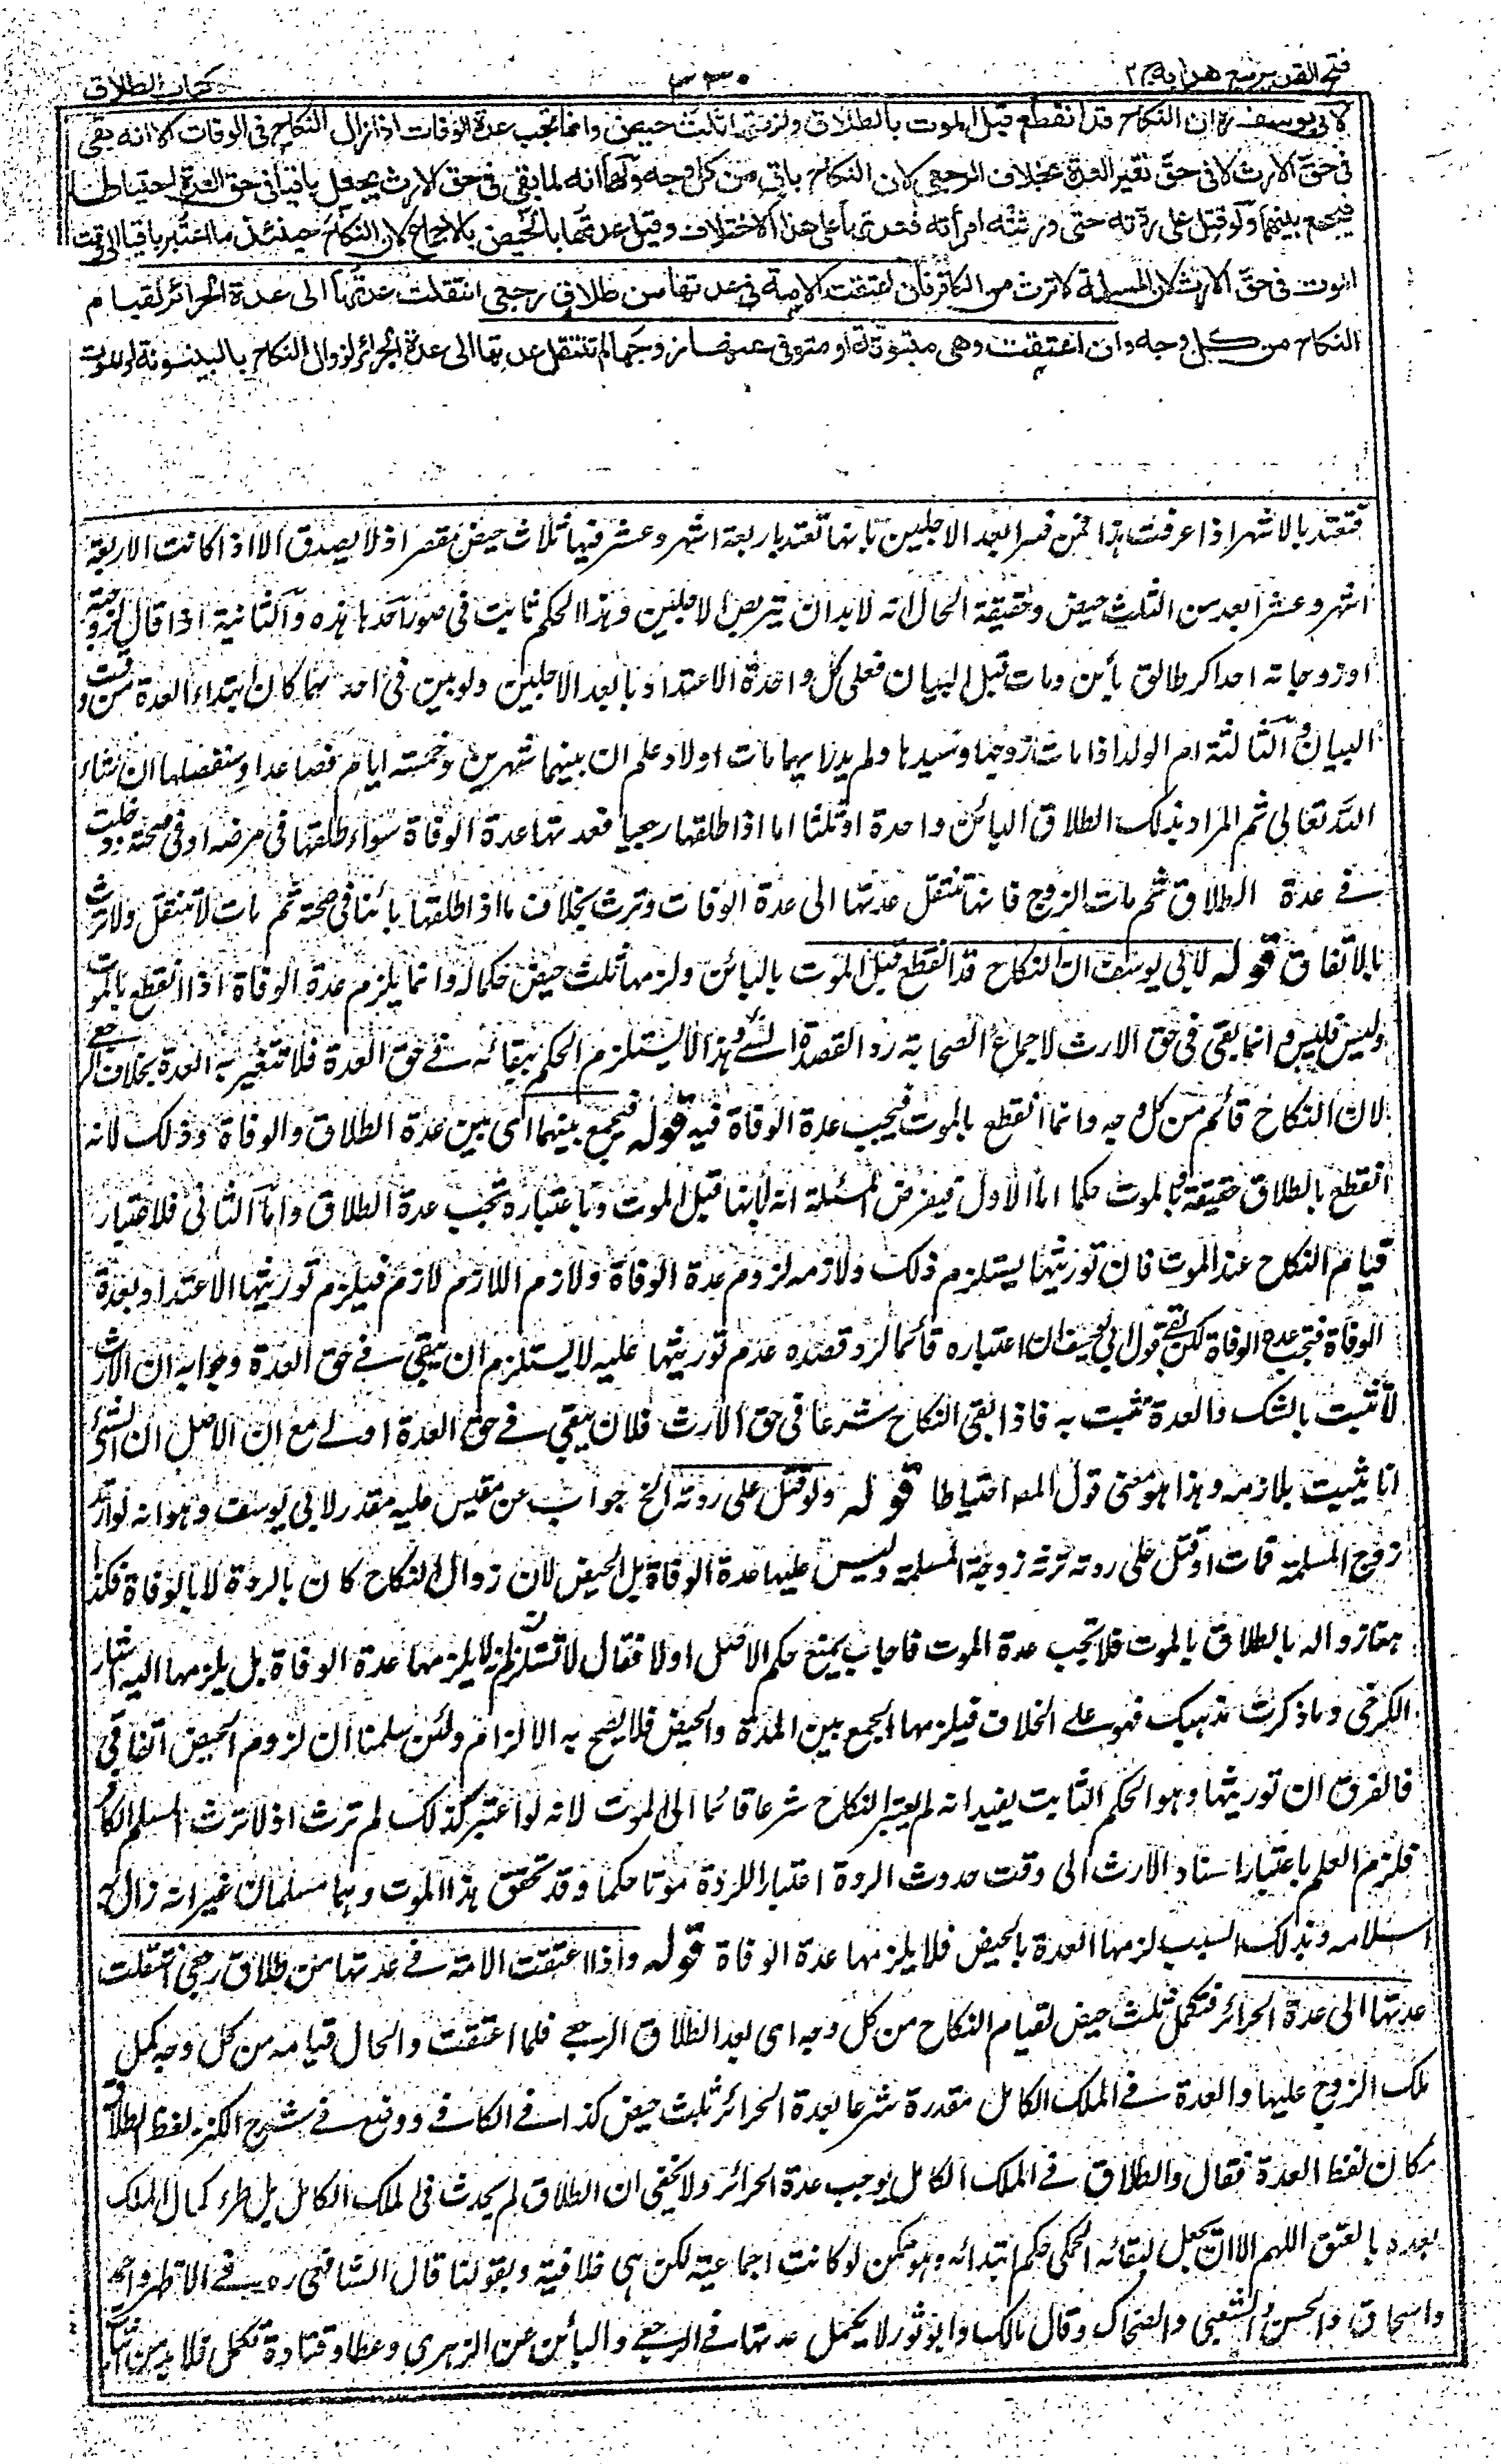 فتح القدير مع هدايه ج ٢
٣٣٠
كتاب الطلاق
لابي يوسف ره ان النكاح قد انقطع قبل الموت بالطلاق ولزمتها ثلث حيض وانما تجب عدة الوفات اذا زال النكاح في الوفات الا انه بقي
في حق الارث لا في حق تغير العدة بخلاف الرجعي لان النكاح باق من كل وجه ولهما انه لما بقي في حق الارث يجعل باقيا في حق العدة احتياطا
فيجمع بينهما ولو قتل على ردته حتى ورثته امرأته فعدتها على هذا الاختلاف وقيل عدتها بالحيض بالاجماع لان النكاح حينئذ ما اعتبر باقيا الى وقت
الموت في حق الارث لان المسلمة لا ترث من الكافر فان اعتقت الامة في عدتها من طلاق رجعي انتقلت عدتها الى عدة الحرائر لقيام
النكاح من كل وجه وان اعتقت وهي مبتوتة او متوفى عنها زوجها لم تنتقل عدتها الى عدة الحرائر لزوال النكاح بالبينونة او الموت
فتعتد بالاشهر اذا عرفت هذا فمن فسر ابعد الاجلين بانها تعتد باربعة اشهر وعشر فيها ثلاث حيض مقصر اذ لا يصدق الا اذا كانت الاربعة
اشهر وعشرا بعد من الثلث حيض وحقيقة الحال انه لا بد ان تتربص الاجلين وهذا الحكم ثابت في صور احدها هذه والثانية اذا قال لزوجته
او زوجاته احداكن طالق بائن ومات قبل البيان فعلى كل واحدة الاعتداد بابعد الاجلين ولو بين في احدهما كان ابتداء العدة من وقت
البيان والثالثة ام الولد اذا مات زوجها وسيدها ولم يدر ايهما مات اولا وعلم ان بينهما شهرين وخمسة ايام فصاعدا وسنفصلها ان شاء
الله تعالى ثم المراد بذلك الطلاق البائن واحدة او ثلثا اما اذا طلقها رجعيا فعدتها عدة الوفاة سواء طلقها في مرضه او في صحته ودخلت
في عدة الطلاق ثم مات الزوج فانها تنتقل عدتها الى عدة الوفات وترث بخلاف ما اذا طلقها بائنا في صحته ثم مات لا تنتقل ولا ترث
بالاتفاق قوله لابي يوسف ان النكاح قد انقطع قبل الموت بالبائن ولزمها ثلث حيض حكما له وانما يلزم عدة الوفاة اذا انقطع بالموت
وليس فليس وانما بقي في حق الارث لاجماع الصحابة رد القصدة السئ وهذا لا يستلزم الحكم ببقائه في حق العدة فلا تتغير به العدة بخلاف الرجعي
لان النكاح قائم من كل وجه وانما انقطع بالموت فيجب عدة الوفاة فيه قوله فيجمع بينهما اى بين عدة الطلاق والوفاة وذلك لانه
انقطع بالطلاق حقيقة وبالموت حكما اما الاول فبفرض المسئلة انه ابانها قبل الموت وباعتباره تجب عدة الطلاق واما الثاني فلاعتبار
قيام النكاح عند الموت فان توريثها يستلزم ذلك ولازمه لزوم عدة الوفاة ولازم اللازم لازم فيلزم توريثها الاعتداد بعدة
الوفاة فتجب عدة الوفاة لكن بقي قول ابي يوسف ان اعتباره قائما لرد قصده عدم توريثها عليه لا يستلزم ان يبقى في حق العدة وجوابه ان الارث
لا تثبت بالشك والعدة تثبت به فاذا بقي النكاح شرعا في حق الارث فلان يبقى في حق العدة اولى مع ان الاصل ان الشئ
انما يثبت بلازمه وهذا هو معنى قول المصـ احتياطا قوله ولو قتل على ردته الخ جواب عن مقيس عليه مقدر لابي يوسف وهو انه لو ارتد
زوج المسلمة فمات او قتل على ردته ترثه زوجته المسلمة وليس عليها عدة الوفاة بل الحيض لان زوال النكاح كان بالردة لا بالوفاة فكذا
هنا زواله بالطلاق لا بالموت فلا تجب عدة الموت فاجاب بمنع حكم الاصل اولا فقال لا نسلم انه لا يلزمها عدة الوفاة بل يلزمها اليه اشار
الكرخي وما ذكرت مذهبك فهو على الخلاف فيلزمها الجمع بين المدة والحيض فلا يصح به الالزام ولئن سلمنا ان لزوم الحيض اتفاقي
فالفرق ان توريثها وهو الحكم الثابت يفيد انه لم يعتبر النكاح شرعا قائما الى الموت لانه لو اعتبر كذلك لم ترث اذ لا ترث المسلم الكافر
فلزم العلم باعتبار اسناد الارث الى وقت حدوث الردة اعتبارا للردة موتا حكما وقد تحقق هذا الموت وهما مسلمان غير انه زال به
اسلامه وبذلك السبب لزمها العدة بالحيض فلا يلزمها عدة الوفاة قوله واذا اعتقت الامة في عدتها من طلاق رجعي انتقلت
عدتها الى عدة الحرائر فتكمل ثلث حيض لقيام النكاح من كل وجه اى بعد الطلاق الرجعي فلما اعتقت والحال قيامه من كل وجه كمل
ملك الزوج عليها والعدة في الملك الكامل مقدرة شرعا بعدة الحرائر ثلث حيض كذا في الكافي ووقع في شرح الكنز لفظ الطلاق
مكان لفظ العدة فقال والطلاق في الملك الكامل يوجب عدة الحرائر ولا يخفى ان الطلاق لم يحدث في الملك الكامل بل طرء كمال الملك
بعده بالعتق اللهم الا ان يجعل لبقائه الحكمي حكم ابتدائه وهو ممكن لو كانت اجماعية لكن هي خلافية وبقولنا قال الشافعي ره في الاظهر واحمد
واسحاق والحسن والشعبي والضحاك وقال مالك وابو ثور لا يكمل عدتها في الرجعي والبائن عن الزهري وعطا وقتادة تكمل فلا بد من اثبات